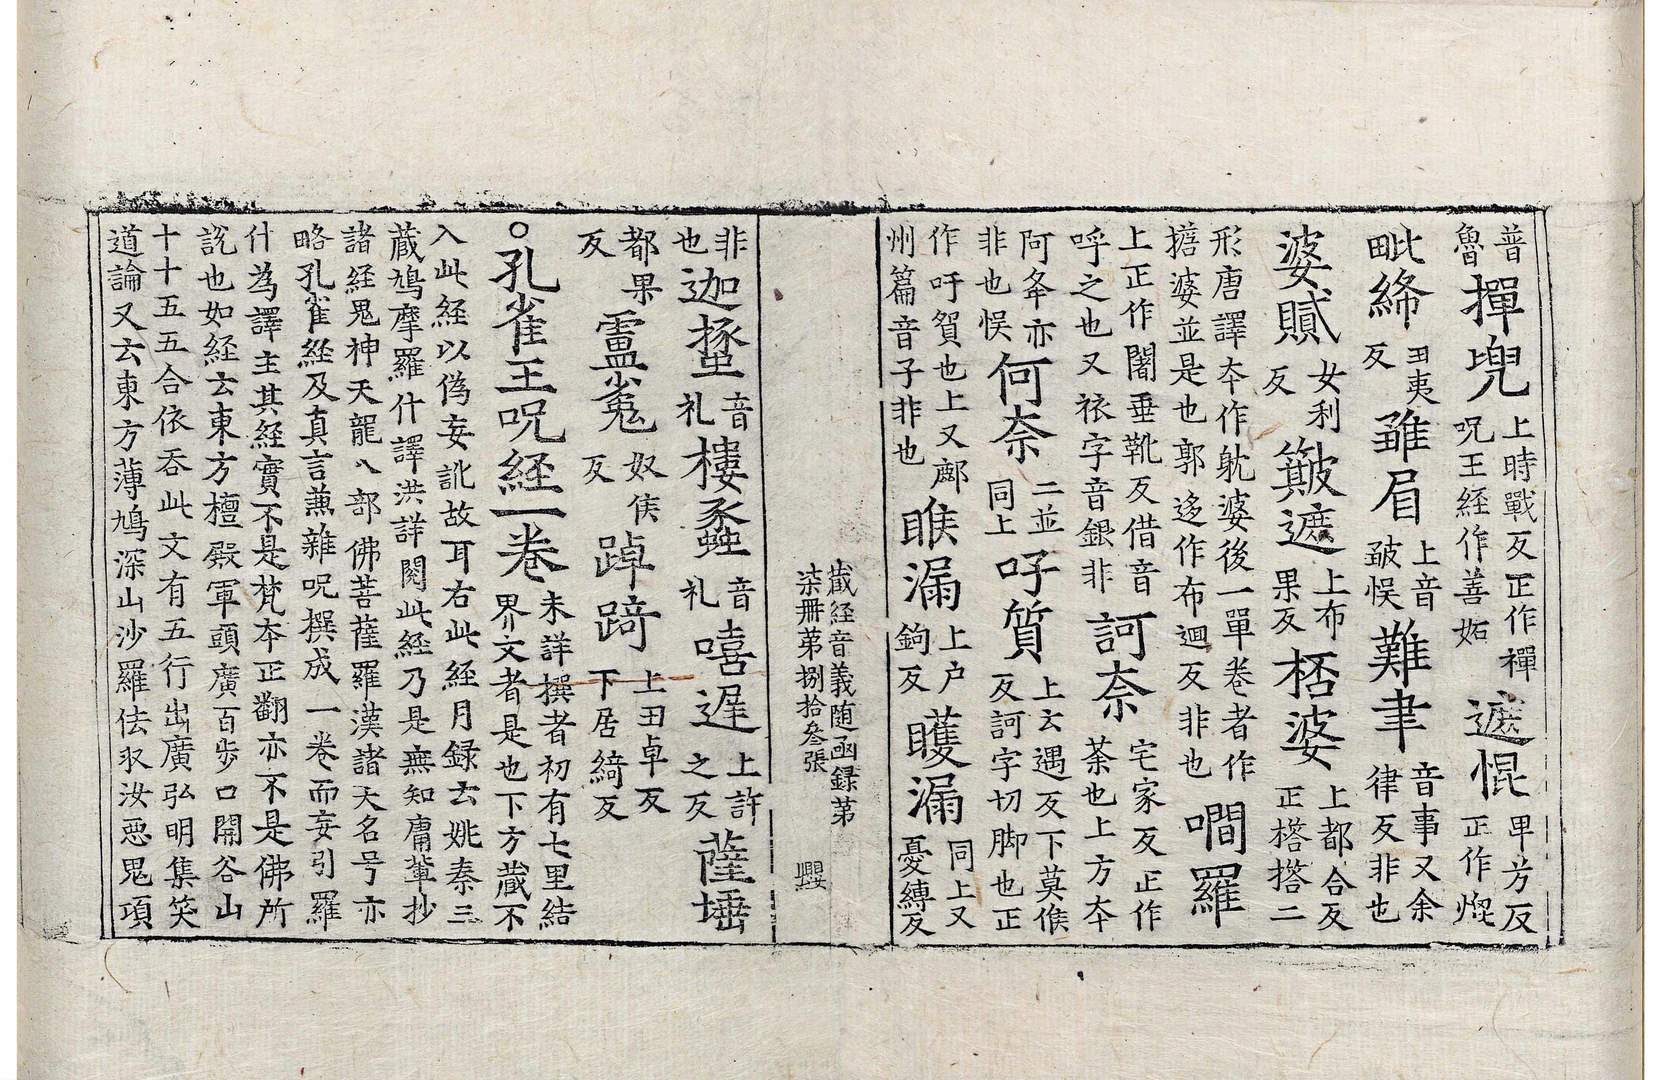 普魯揮兜上時戰反正作禪呪王經作善妬遮惃甲芳反正作焜
毗締田夷反雖眉上音跛悮難聿音事又余律反非也
婆贀女利反簸遮上布果反栝婆上都合反正搭撘二
形唐譯夲作躭婆後一單卷者作搚婆並是也郭迻作布迴反非也㘔羅
上正作闍垂靴反借音呼之也又祑字音銀非訶奈宅家反正作荼也上方夲
阿夆亦非也悮何奈二並同上吇質上玄遇反下莫俟反訶字切脚也正
作吁賀也上又郕州篇音子非也睺漏上户鉤反矆漏同上又憂縛反
藏経音義随函録第
柒冊第捌拾叄張 罌
非也迦音礼樓蟸音礼嘻遟上許之反薩埵
都果反奴侯反踔踦上丑卓反下居綺反
○孔雀王呪経一卷未詳撰者初有七里結界文者是也下方藏不
入此経以偽妄訛故耳右此経月録云姚秦三
藏鳩摩羅什譯洪詳閱此經乃是無知庸輩抄
諸経鬼神天龍八部佛菩薩羅漢諸天名号亦
略孔雀経及真言兼雜呪撰成一卷而妄引羅
什為譯主其經實不是梵夲正翻亦不是佛所
說也如経云東方檀殿軍頭廣百步口開谷山
十十五五合依吞此文有五行出廣弘明集笑
道論又云東方薄鳩深山沙羅佉収汝惡鬼項